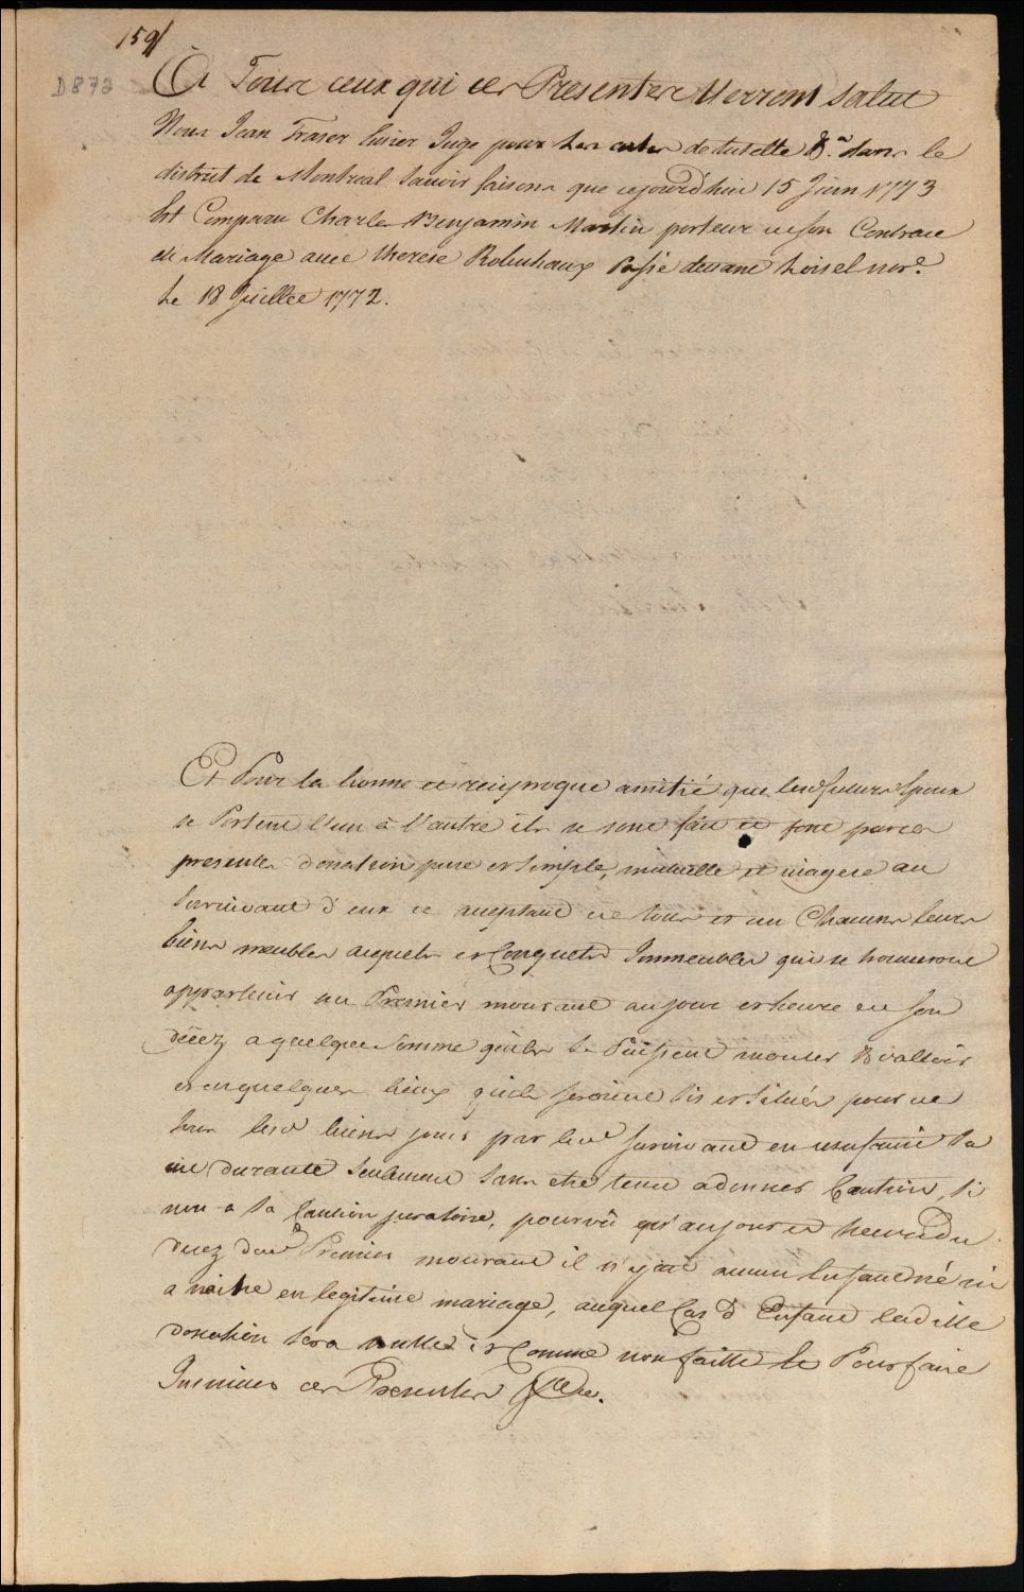 159/
D873
A Tous ceux qui ces Presentes Verront Salut
Nous Jean Fraser Ecuier Juge pour les actes de tutelle &.a dans le
district de Montreal Savoir faisons que cejourd'hui 15 Juin 1773
Est Comparu Charles Benjamin Martin porteur de son Contract
de Mariage avec therese Robuhaux Passé devant Loisel nore.
Le 18 Juillet 1772.
Et Pour la bonne et reciproque amitié que lesd futurs Epoux
se Portent l'un à l'autre ils se sont fait et font par ces
presentes donation pure et simple, mutuelle et viagere au
Survivant d'eux ce acceptant de tous et un Chacuns leurs
biens meubles acquets et Conquets Immeubles qui se trouveront
appartenir au Premier mourant au jour et heure de son
deces a quelque Somme qu'ils se Puissent monter & valloir
et en quelques lieux qu'ils seroient sis et situés pour de
tous lesd biens jouir par led survivant en usufruit sa
vie durante Seulement sans etre tenu a donner Caution, si
non a sa Caution juratoire, pourvû qu'au jour et heure du
decez dud Premier mourant il n'y ait aucun Enfant né ni
a naitre en legitime mariage, auquel Cas d'Enfant ladille
donation sera nulle et Comme non faitte Et Pour faire
Insinuer ces Presentes &c.